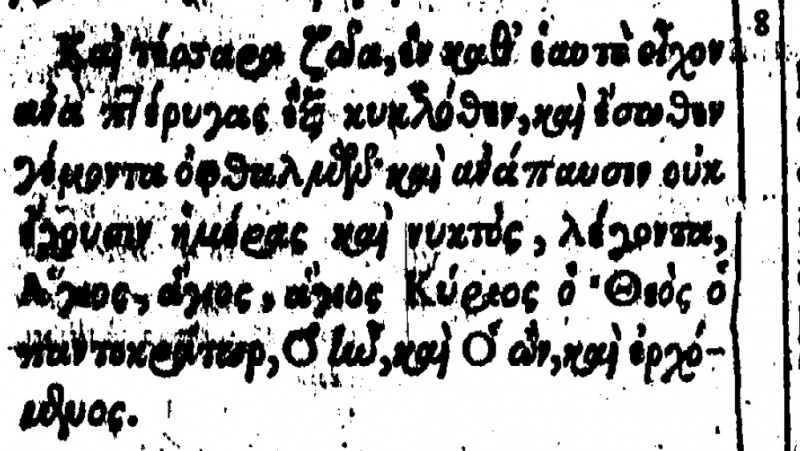 8
Καὶ τέσσαρα ζῶα, ἓν καθ' ἑαυτὸ εἶχον
ἀνὰ πτέρυγας ἓξ κυκλόθεν, καὶ ἔσωθεν
γέμοντα ὀφθαλμῶν· καὶ ἀνάπαυσιν οὐκ
ἔχουσιν ἡμέρας καὶ νυκτὸς, λέγοντα,
Ἅγιος, ἅγιος, ἅγιος Κύριος ὁ Θεὸς ὁ
παντοκράτωρ, Ὁ ἦν, καὶ Ὁ ὢν, καὶ ἐρχό-
μενος.